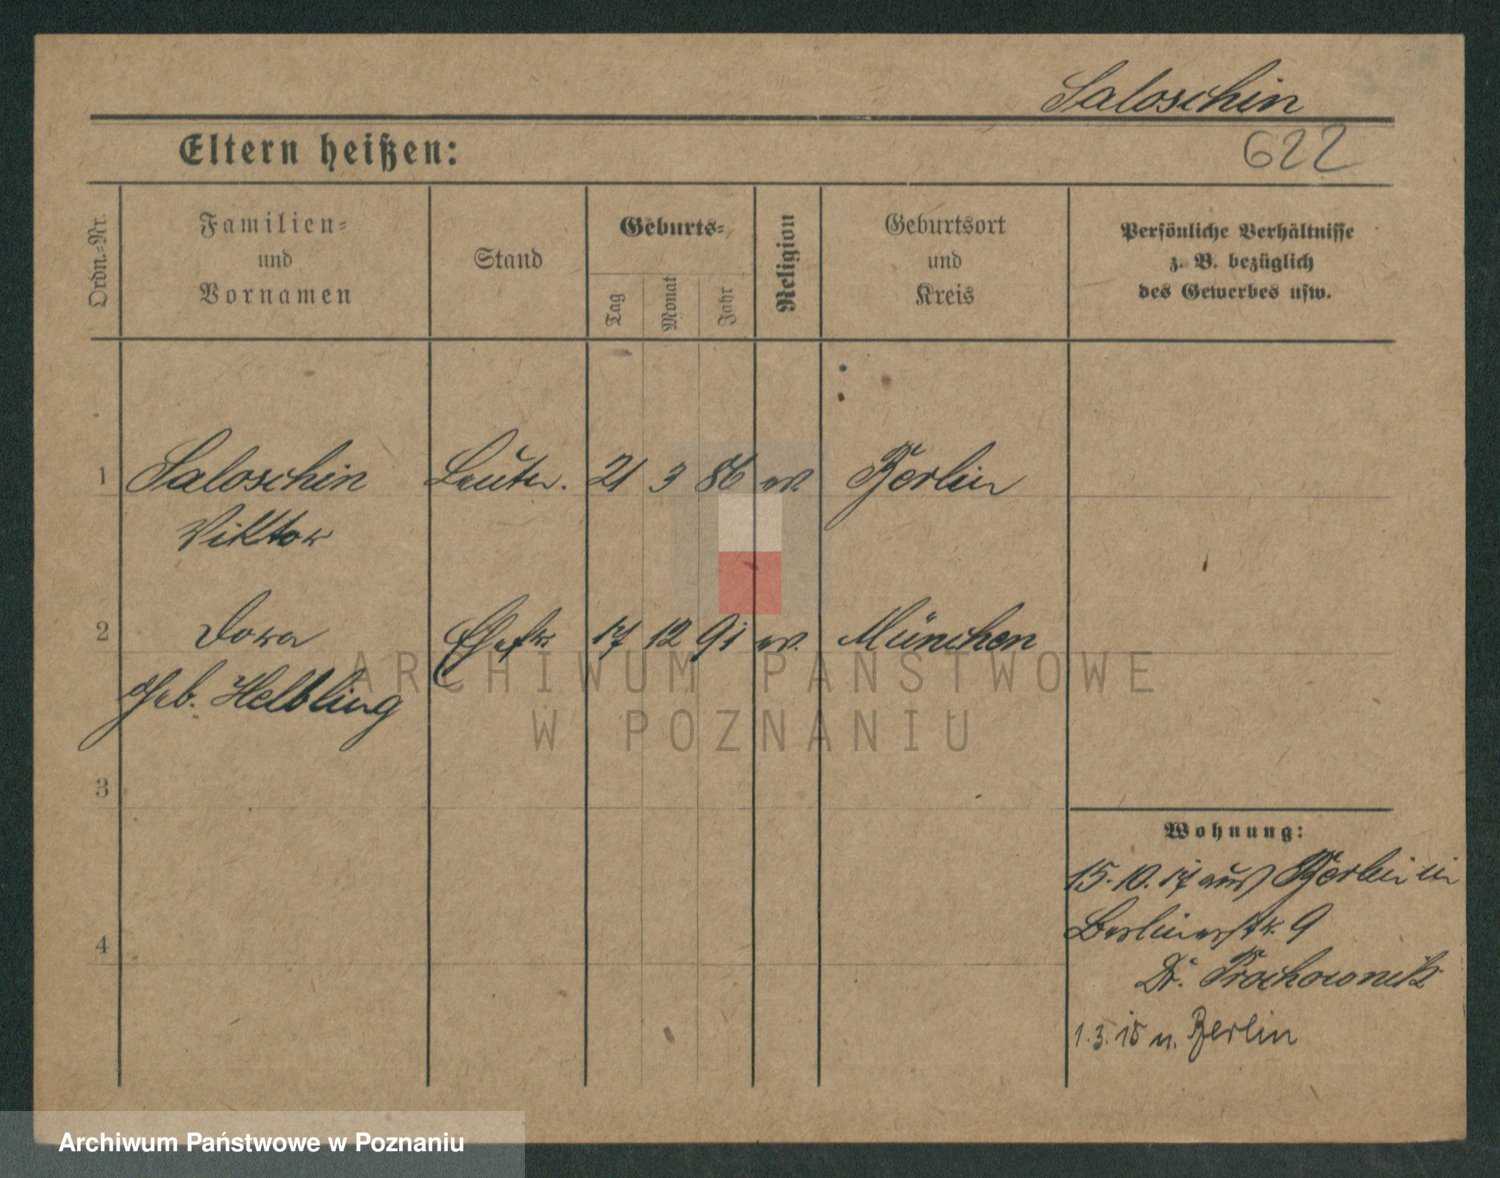 Saloschin
Eltern heißen:
622
Ordn.-Nr.
Familien-
und
Vornamen
Stand
Geburts-
Tag
Monat
Jahr
Religion
Geburtsort
und
Kreis
Persönliche Verhältnisse
z. B. bezüglich
des Gewerbes usw.
1 Saloschin Leutn. 21 3 86 ev. Berlin
Viktor
2 Dora Ehefr 17 12 91 ev. München
geb. Helbling
ARCHIWUM PAŃSTWOWE
W POZNANIU
3
Wohnung:
15.10.17 aus Berlin in
Berlinerstr. 9
4
Dr. Prochownik
1.3.18 n. Berlin
Archiwum Państwowe w Poznaniu